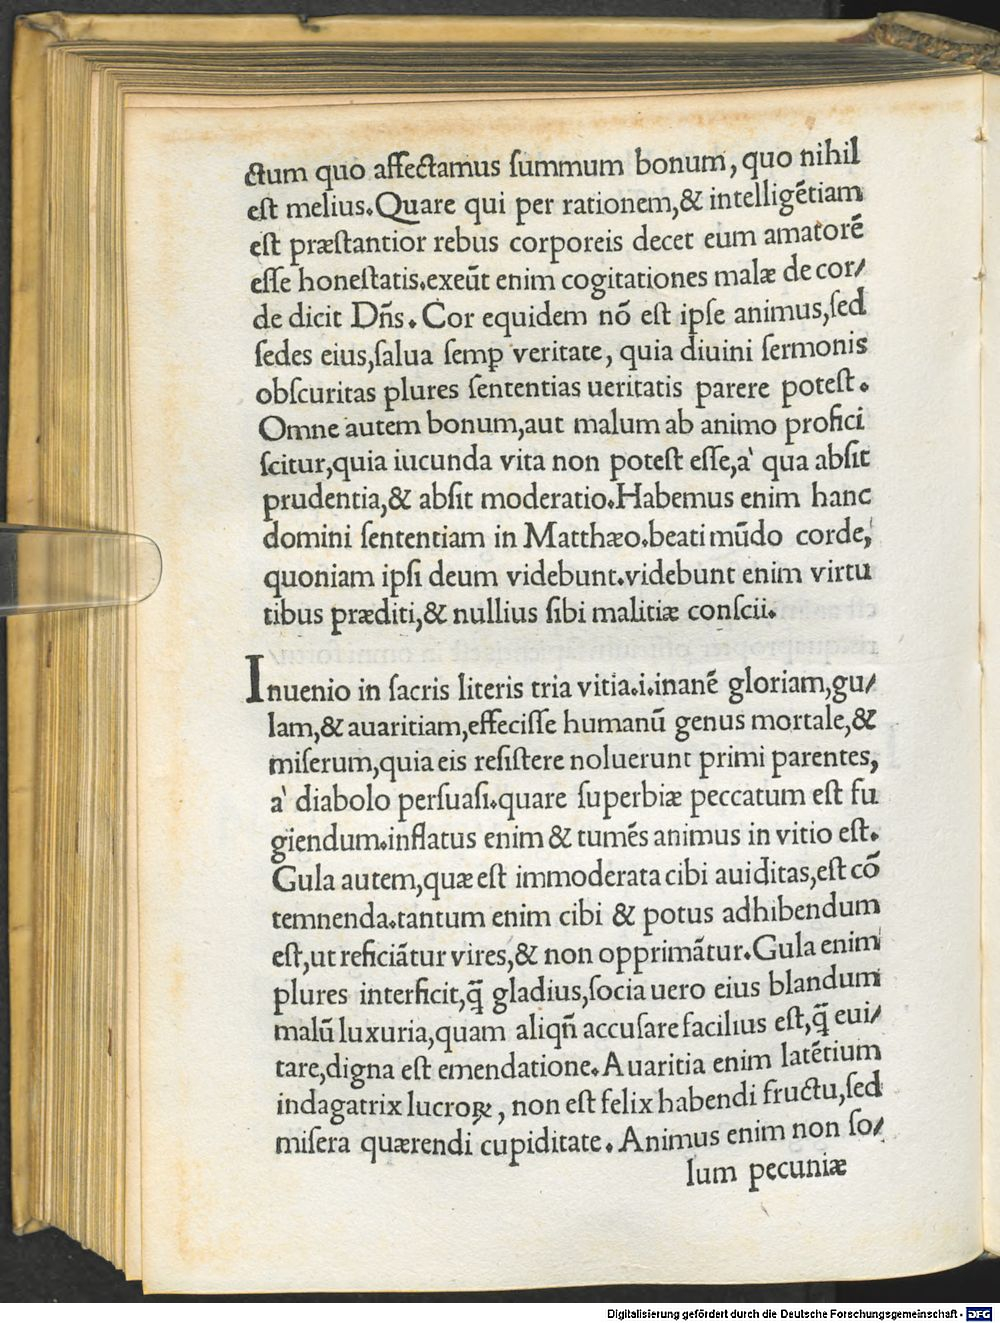 ctum quo affectamus ſummum bonum, quo nihil
eſt melius.Quare qui per rationem,& intelligẽtiam
eſt præſtantior rebus corporeis decet eum amatorẽ
eſſe honeſtatis.exeũt enim cogitationes malæ de cor/
de dicit Dñs. Cor equidem nõ eſt ipſe animus,ſed
ſedes eius,ſalua ſemꝑ veritate, quia diuini ſermonis
obſcuritas plures ſententias ueritatis parere poteſt.
Omne autem bonum,aut malum ab animo profici
ſcitur,quia iucunda vita non poteſt eſſe,a' qua abſit
prudentia,& abſit moderatio.Habemus enim hanc
domini ſententiam in Matthæo.beati mũdo corde,
quoniam ipſi deum videbunt.videbunt enim virtu
tibus præditi,& nullius ſibi malitiæ conſcii.
Inuenio in ſacris literis tria vitia.i.inanẽ gloriam,gu/
lam,& auaritiam,effeciſſe humanũ genus mortale,&
miſerum,quia eis reſiſtere noluerunt primi parentes,
a' diabolo perſuaſi.quare ſuperbiæ peccatum eſt fu
giendum.inflatus enim & tumẽs animus in vitio eſt.
Gula autem,quæ eſt immoderata cibi auiditas,eſt cõ
temnenda.tantum enim cibi & potus adhibendum
eſt,ut reficiãtur vires,& non opprimãtur.Gula enim
plures interficit,q̃ gladius,ſocia uero eius blandum
malũ luxuria,quam aliqñ accuſare facilius eſt,q̃ eui/
tare,digna eſt emendatione.Auaritia enim latẽtium
indagatrix lucroꝝ, non eſt felix habendi fructu,ſed
miſera quærendi cupiditate. Animus enim non ſo/
lum pecuniæ
Digitalisierung gefördert durch die Deutsche Forschungsgemeinschaft - DFG